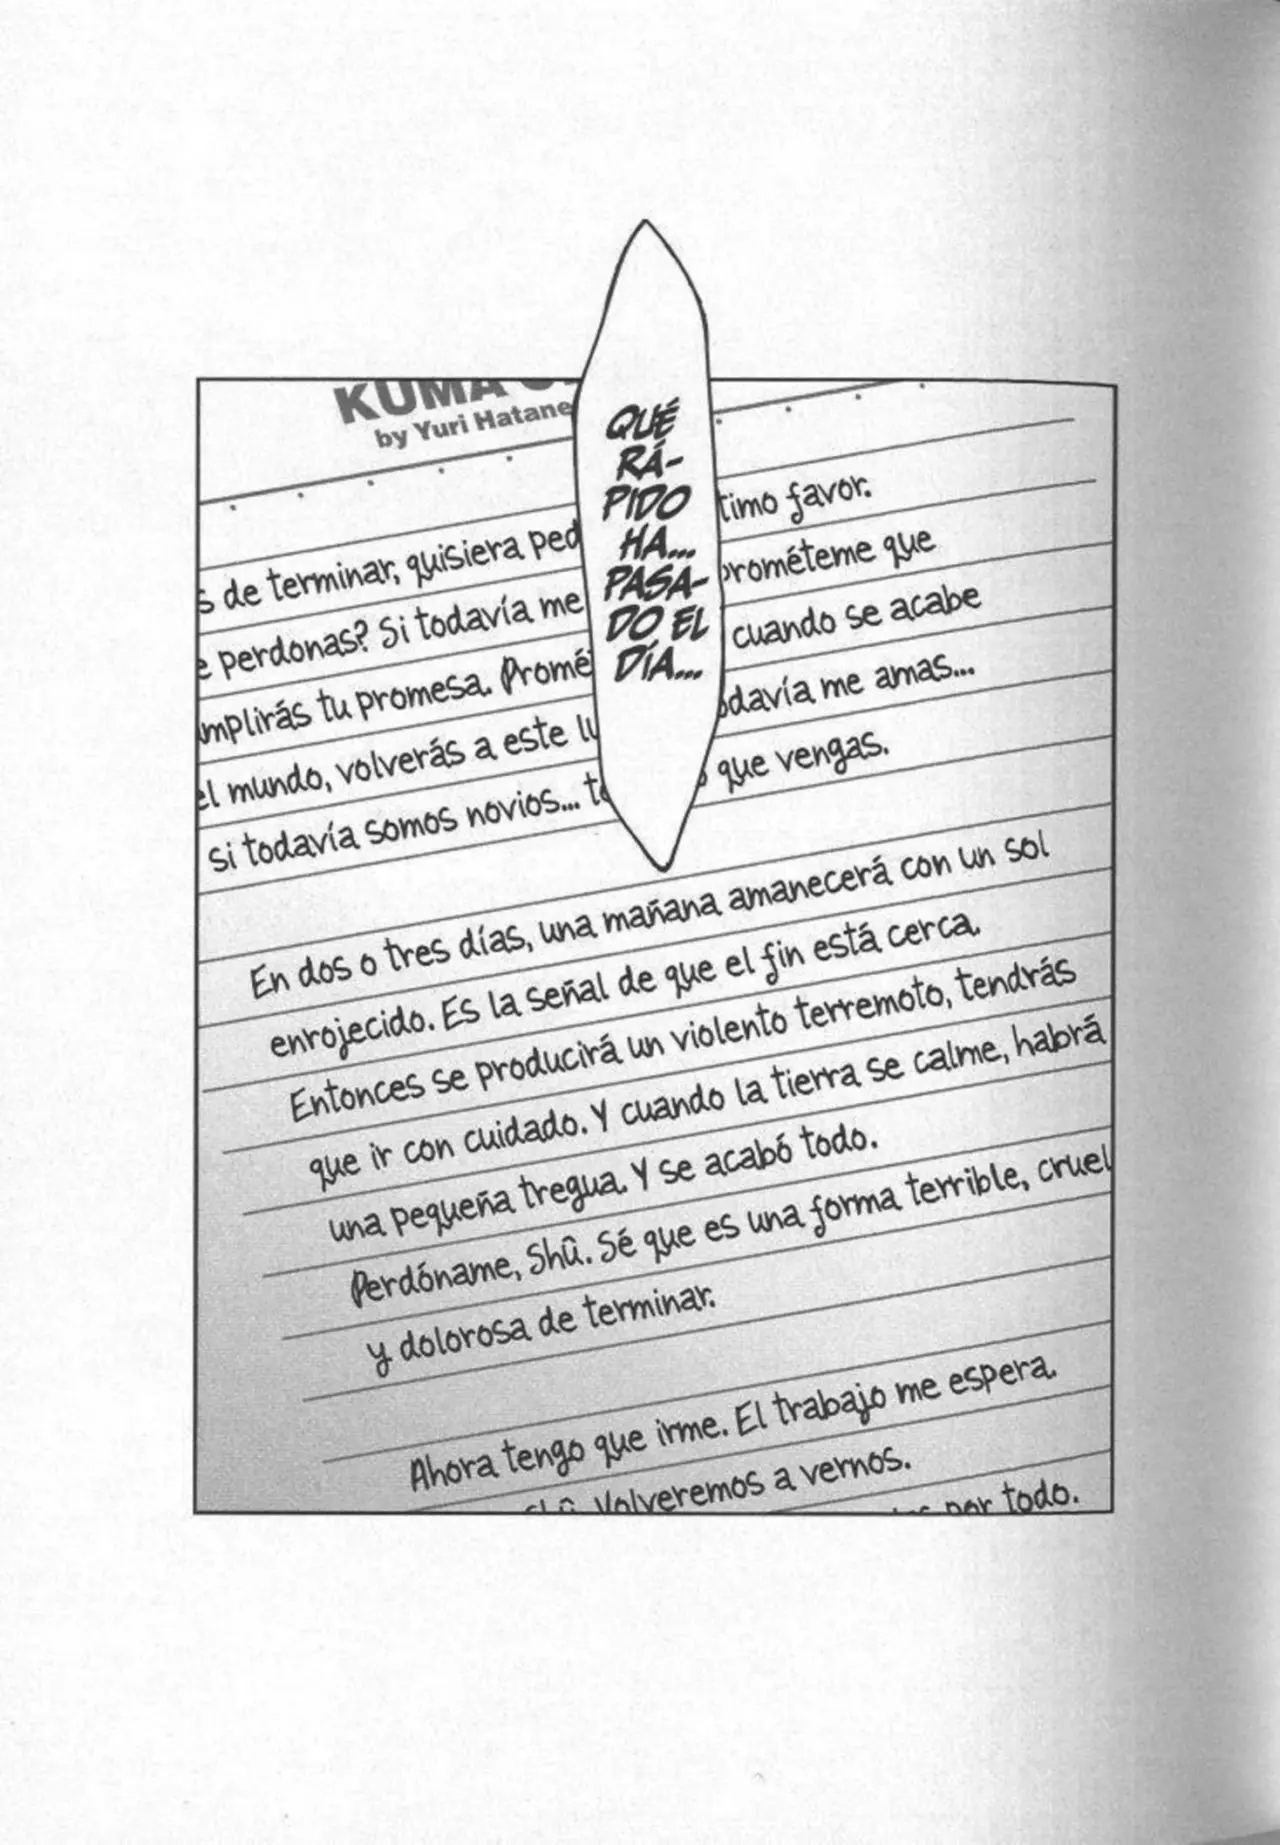 KUMA
by Yuri Hatane
QUÉ
RÁ-
PIDO
HA...
PASA-
DO EL
DÍA...
s de terminar, quisiera ped timo favor.
e perdonas? Si todavía me prométeme que
mplirás tu promesa. Promé cuando se acabe
el mundo, volverás a este lu odavía me amas...
si todavía somos novios... te o que vengas.
En dos o tres días, una mañana amanecerá con un sol
enrojecido. Es la señal de que el fin está cerca.
Entonces se producirá un violento terremoto, tendrás
que ir con cuidado. Y cuando la tierra se calme, habrá
una pequeña tregua. Y se acabó todo.
Perdóname, Shû. Sé que es una forma terrible, cruel
y dolorosa de terminar.
Ahora tengo que irme. El trabajo me espera.
Shû. Volveremos a vernos.
por todo.